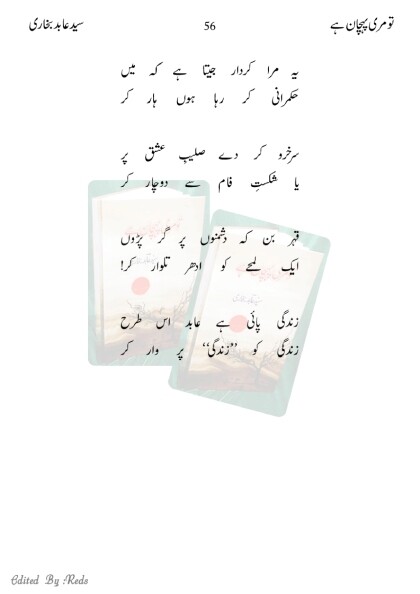 تو مری پہچان ہے 56 سید عابد بخاری
یہ مرا کردار جیتا ہے کہ میں
حکمرانی کر رہا ہوں ہار کر
سرخرو کر دے صلیبِ عشق پر
یا شکستِ فام سے دوچار کر
قہر بن کہ دشمنوں پر گر پڑوں
ایک لمحے کو ادھر تلوار کر!
زندگی پائی ہے عابد اس طرح
زندگی کو ’’زندگی‘‘ پر وار کر
Edited By Reds